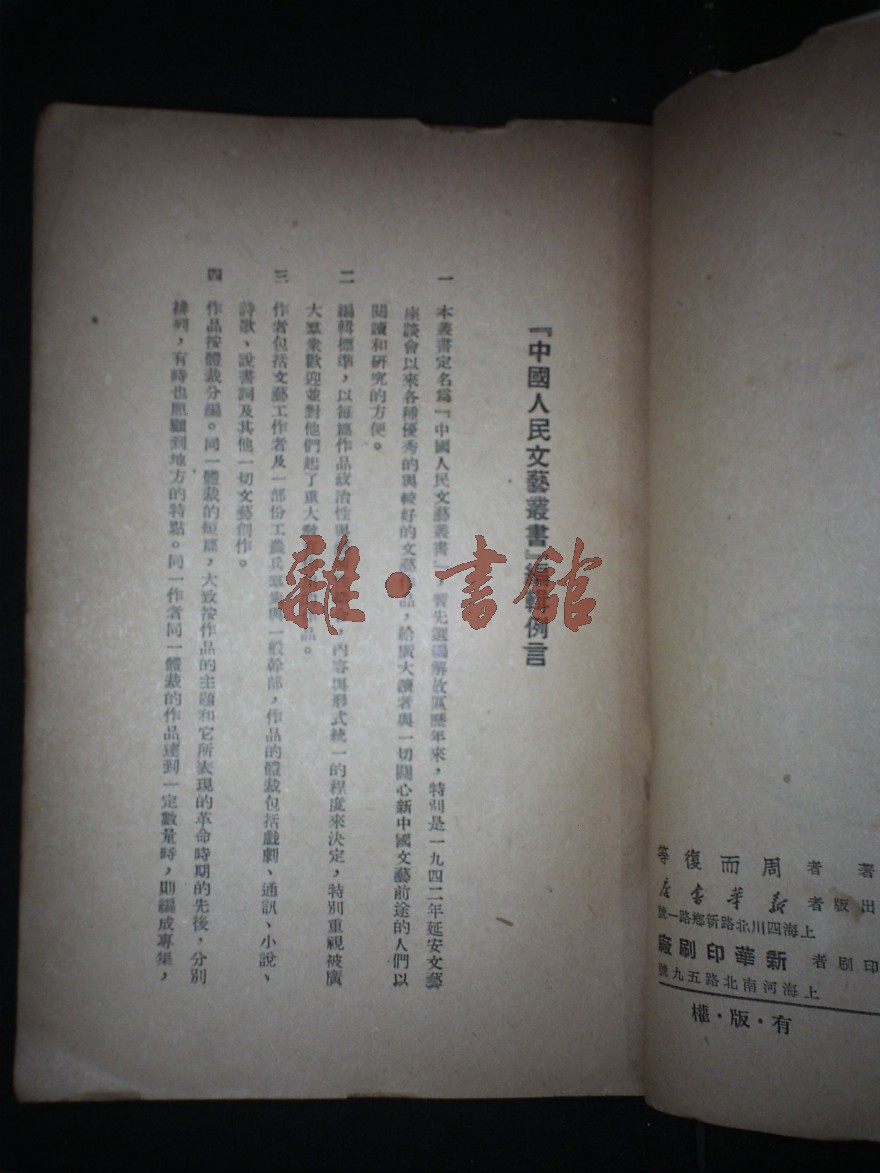 『中國人民文藝叢書』編輯例言
一 本叢書定名爲『中國人民文藝叢書』，暫先選編解放區歷年來，特別是一九四二年延安文藝
座談會以來各種優秀的與較好的文藝作品，給廣大讀者與一切關心新中國文藝前途的人們以
閱讀和研究的方便。
二 編輯標準，以每篇作品政治性與，內容與形式統一的程度來決定，特別重視被廣
大羣衆歡迎並對他們起了重大品。
三 作者包括文藝工作者及一部份工農兵羣衆與一般幹部，作品的體裁包括戲劇、通訊、小說、
詩歌、說書詞及其他一切文藝創作。
四 作品按體裁分編。同一體裁的短篇，大致按作品的主題和它所表現的革命時期的先後，分別
排列，有時也照顧到地方的特點。同一作者同一體裁的作品達到一定數量時，則編成專集，
雜·書館
著者 周而復等
出版者 新華書店
上海四川北路新鄉路一號
印刷者 新華印刷廠
上海河南北路五九號
有·版·權